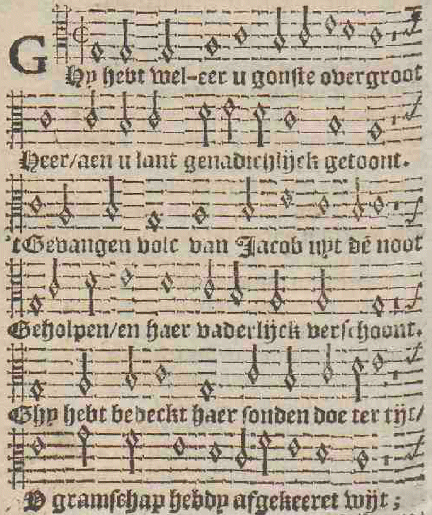 GHy hebt wel-eer u gonste overgroot
Heer/aen u lant genadichlijck getoont.
'tGevangen volc van Jacob uyt dē noot
Geholpen/en haer vaderlijck verschoont.
Ghy hebt bedeckt haer sonden doe ter tijt/
D gramschap hebdy afgekeeret wijt;